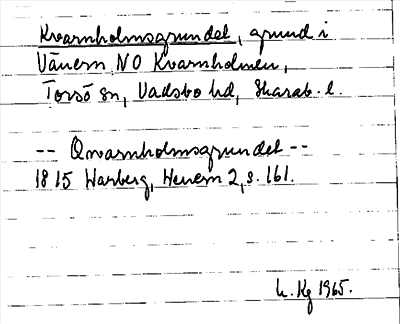 Kvarnholmsgrundet, grund i
Vänern NO Kvarnholmen,
Torsö sn, Vadsbo hd, Skarab. l.
-- Qvarnholmsgrundet --
1815 Warberg, Wenern 2, s. 161.
L. Kg 1965.